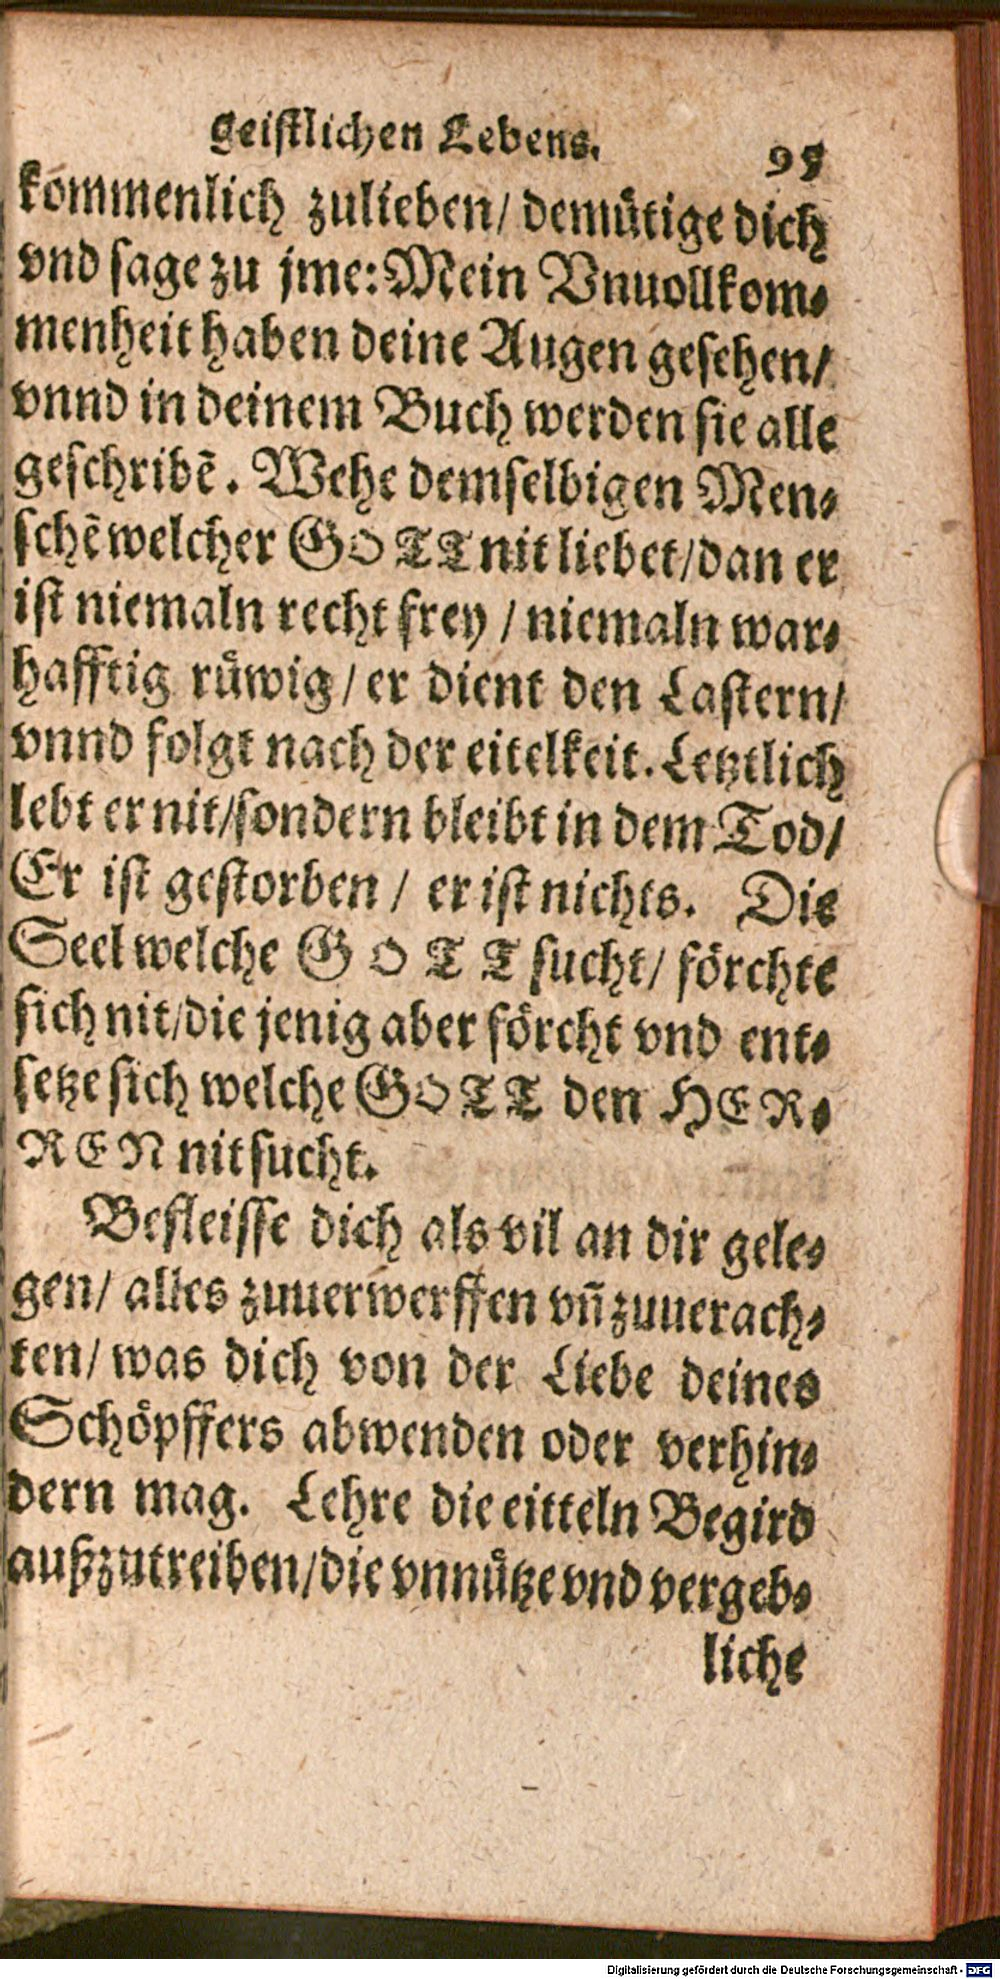 geistlichen Lebens. 95
kommenlich zulieben/ demütige dich
vnd sage zu jme: Mein Vnuollkom-
menheit haben deine Augen gesehen/
vnnd in deinem Buch werden sie alle
geschribẽ. Wehe demselbigen Men-
schẽ welcher GOTT nit liebet/dan er
ist niemaln recht frey / niemaln war-
hafftig rüwig/ er dient den Lastern/
vnnd folgt nach der eitelkeit. Letztlich
lebt er nit/sondern bleibt in dem Tod/
Er ist gestorben / er ist nichts. Die
Seel welche GOTT sucht/ förchte
sich nit/die jenig aber förcht vnd ent-
setze sich welche GOTT den HER-
REN nit sucht.
Befleisse dich als vil an dir gele-
gen/ alles zuuerwerffen vñ zuuerach-
ten/ was dich von der Liebe deines
Schöpffers abwenden oder verhin-
dern mag. Lehre die eitteln Begird
außzutreiben/die vnnütze vnd vergeb-
liche
Digitalisierung gefördert durch die Deutsche Forschungsgemeinschaft - DFG